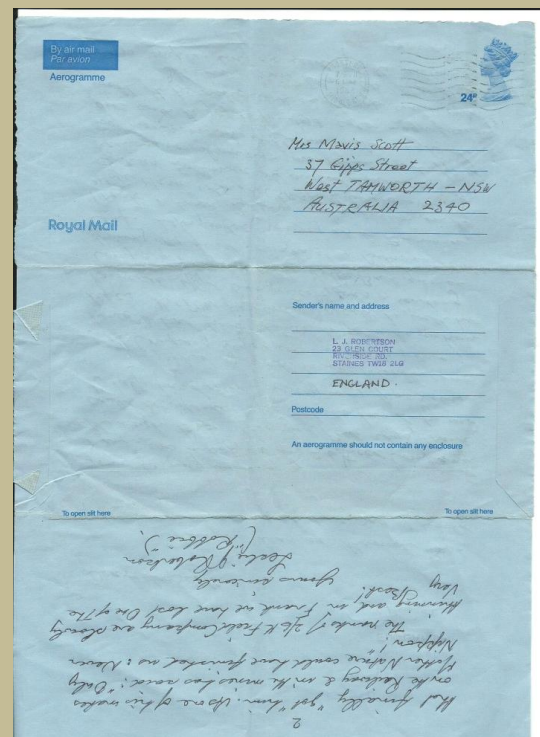 By air mail
Par avion
Aerogramme
24P
Mrs Mavis Scott
37 Gipps Street
West TAMWORTH - NSW
AUSTRALIA 2340
Royal Mail
Sender's name and address
L. J. ROBERTSON
23 GLEN COURT
RIVERSIDE RD.
STAINES TW18 2LG
ENGLAND.
Postcode
An aerogramme should not contain any enclosure
To open slit here
To open slit here
2
that finally "got" him. As one of his mates
on the Railway & in the mines has said: "Only
Mother Nature could have finished us: Never
Nippon!"
The ranks of 2/6th Field Company are slowly
thinning and in Frank, we have lost One of The
Very Best!
Yours sincerely
Leslie J Robertson
("Robbie").